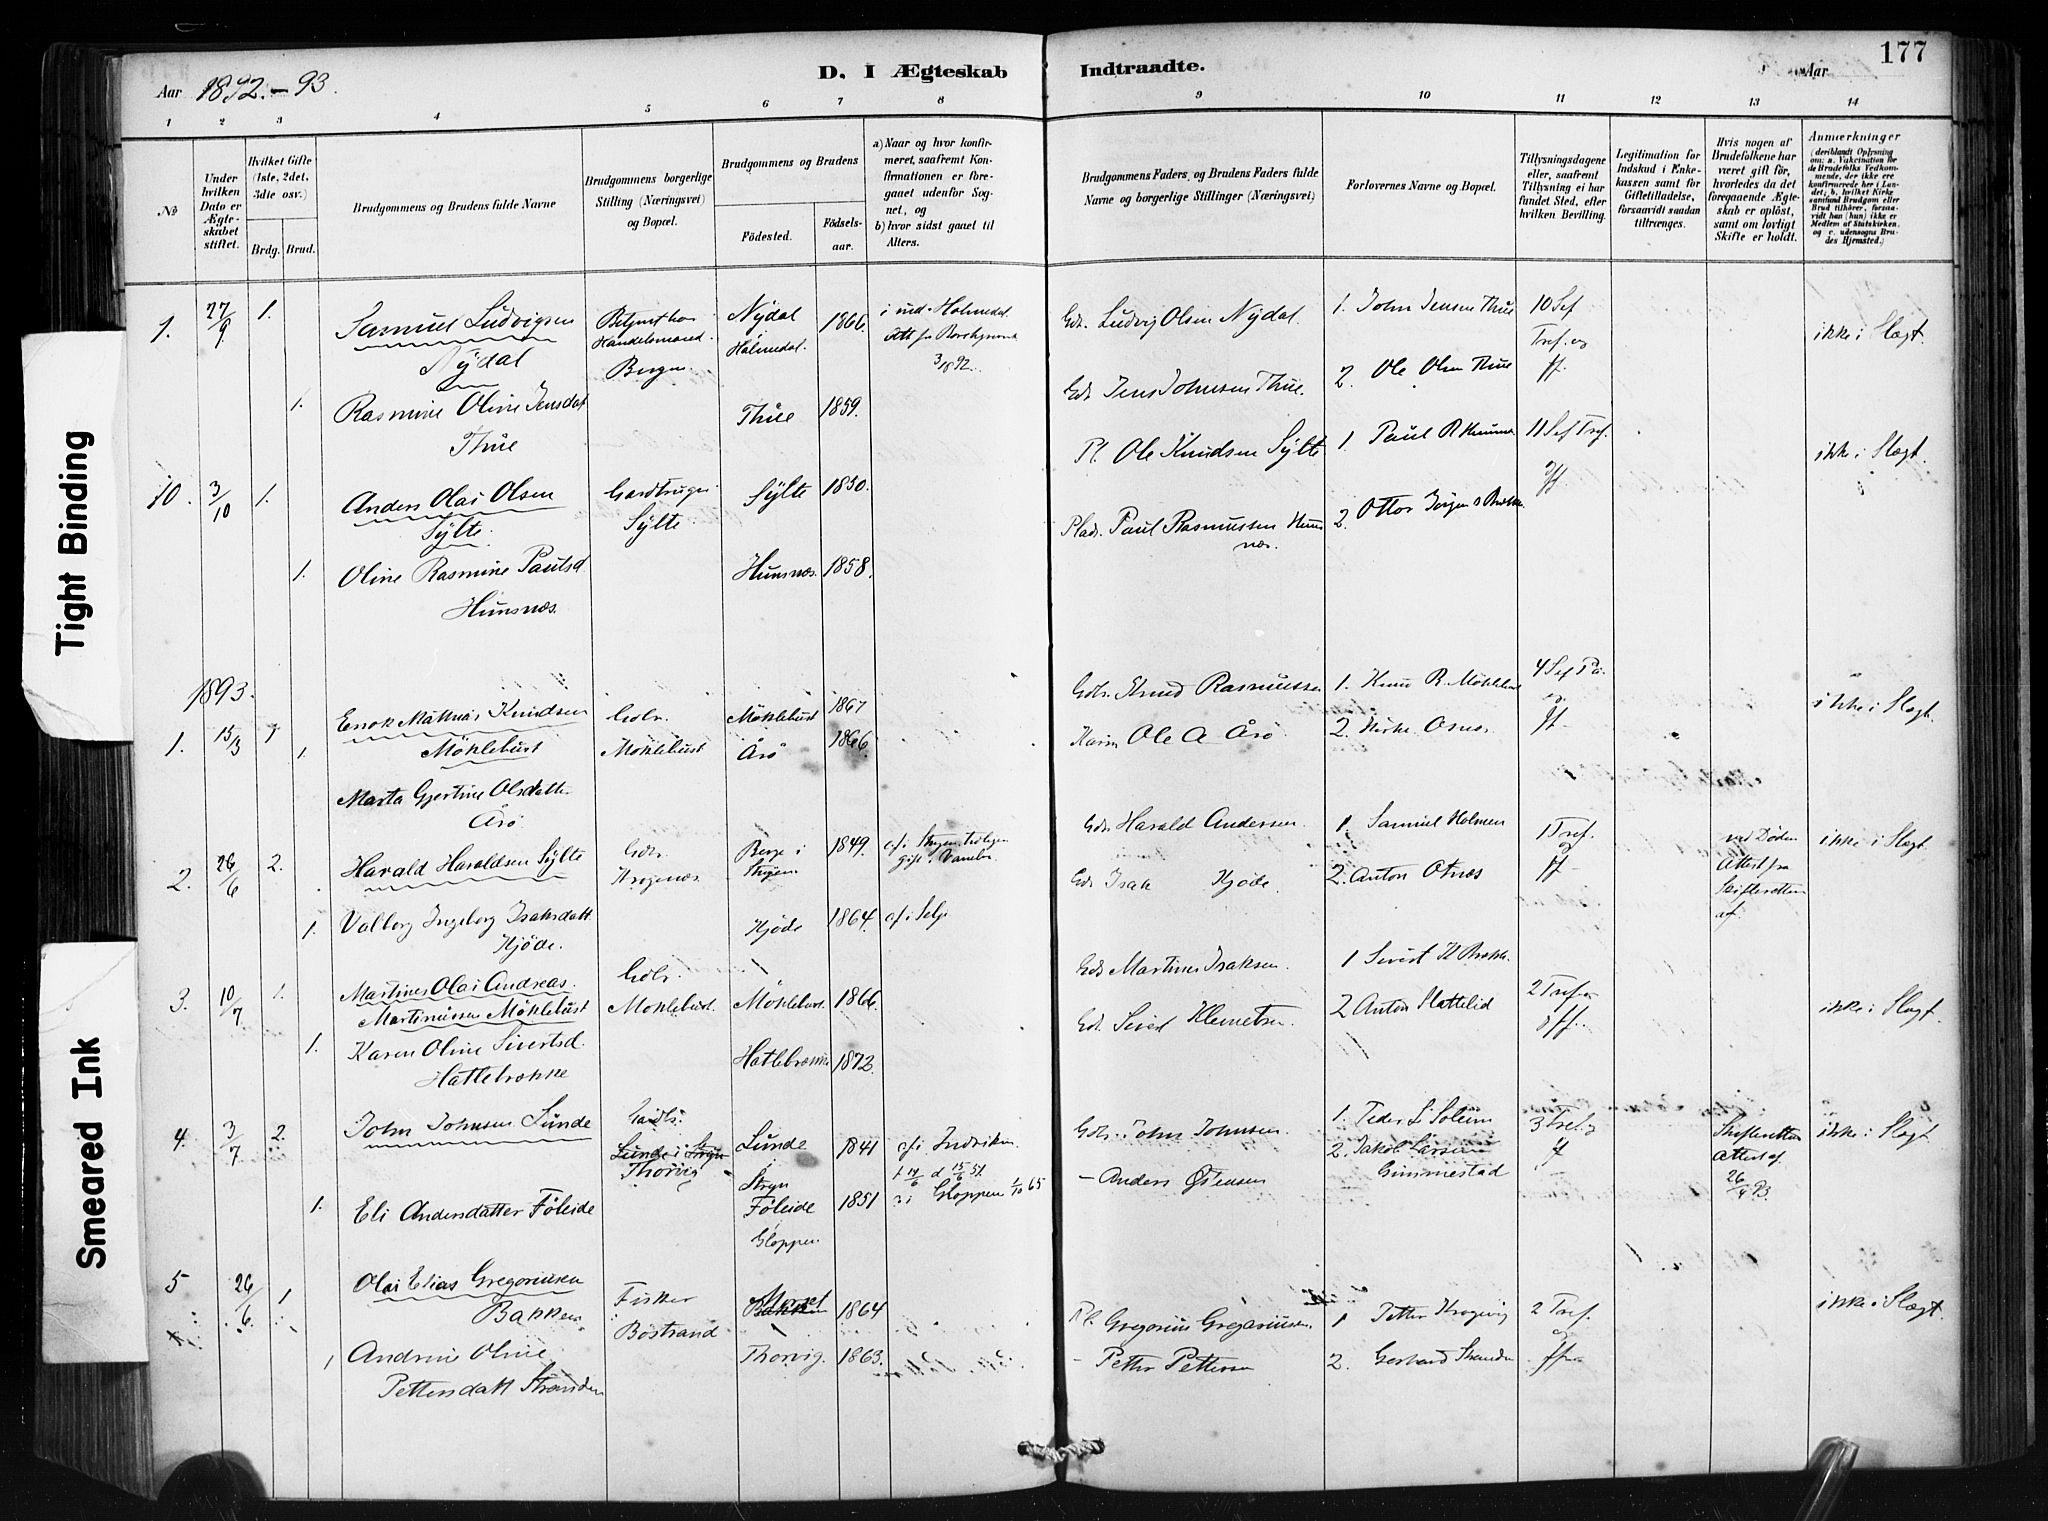 177
Aar 1892.-93.
D. I Ægteskab Indtraadte.
Aar
1 2 3 4 5 6 7 8 9 10 11 12 13 14
No
Under hvilken Dato er Ægteskabet stiftet.
Hvilket Gifte (1ste, 2det, 3die osv.)
Brdg. Brud.
Brudgommens og Brudens fulde Navne
Brudgommens borgerlige Stilling (Næringsvei) og Bopæl.
Brudgommens og Brudens
Fødested.
Fødselsaar.
a) Naar og hvor konfirmeret, saafremt Konfirmationen er foregaaet udenfor Sognet, og
b) hvor sidst gaaet til Alters.
Brudgommens Faders, og Brudens Faders fulde Navne og borgerlige Stillinger (Næringsvei)
Forlovernes Navne og Bopæl.
Tillysningsdagene eller, saafremt Tillysning ei har fundet Sted, efter hvilken Bevilling.
Legitimation for Indskud i Enkekassen samt for Giftetilladelse, forsaavidt saadan tiltrænges.
Hvis nogen af Brudefolkene har været gift før, hvorledes da det foregaaende Ægteskab er opløst, samt om lovligt Skifte er holdt.
Anmærkninger
(deriblandt Oplysning om: a. Vakcination for de Brudefolks Vedkommende, der ikke ere konfirmerede her i Landet; b. hvilket Kirkesamfund Brudgom eller Brud tilhører, forsaavidt han (hun) ikke er Medlem af Statskirken, og c. udensogns Brudes Hjemsted.)
27/9 1. Samuel Ludvigsen Nÿdal
Handelsmand Bergen
Nÿdal i Holmedal. 1866.
i ind. Holmedal
Gdr. Ludvig Olsen Nÿdal.
1. John Jensen Thue
10 Sef Tref. og ff.
ikke i Slægt.
1. Rasmine Oline Jensdat Thue
Thue 1859.
Gdr Jens Johnsen Thue.
2. Ole Olsen Thue
10. 3/10 1. Anders Olai Olsen Sÿlte.
Sÿlte
Sÿlte 1830.
Pl. Ole Knudsen Sÿlte
1. Paul R
11 Sef Tref. og ff
ikke i Slægt.
1. Oline Rasmine Paulsd. Hunsnæs.
Hunsnæs. 1858.
Plads. Paul Rasmussen Hunsnæs.
2.
1893.
1. 15/3 1 Enok Mathias Knudsen Möklebust
Gdbr. Möklebust
Möklebust 1867
Gdbr. Knud Rasmussen
1. Knud R. Möklebust
4 Sef
og ff
ikke i Slægt.
1. Marta Gjertine Olsdatter Årö
Årö 1866.
Ole A Årö
2.
2. 26/6 2. Harald Haraldsen Sÿlte
Gdbr.
Berge i Stryn 1849.
Gdr. Harald Andersen.
1. Samuel Holmen
1 Tref. og ff
ved Døden Attest fra Skifteretten af
ikke i Slægt
1. Valborg Ingeborg Isaksdatt. Hjöde.
Hjöde 1864.
c/i Selje
Gdr Isak Hjöde.
2. Anton Otnæs
3. 10/7 1. Martines Olai Andreas. Martinussen Möklebust
Gdbr. Möklebust.
Möklebust. 1866.
Gdr Martines Isaksen.
1 Sivert
2 Tref. og ff.
ikke i Slægt.
1. Karen Oline Sivertsd. Hatlebrække
Hatlebrække 1872.
Gdr. Sivert Klemetsen.
2 Anton Slattelid
4. 3/7 2. John Johnsen Lunde
Gaardbr. Lunde i Stryn Thorvig
Lunde Stryn 1841
c/i Indviken
Gdbr. John Johnsen.
1. Peder S Soleim
3 Tref. og ff
Skifteretten Attest af 26/4 93.
ikke i Slægt
1. Eli Andersdatter Föleide
Föleide Gloppen. 1851
i Gloppen 1/10 65
- Anders
2. Jakob Larsen Gimmestad
5 26/6 1 Olai Elias Gregoriusen Bakken
Fisker Bostrand
Bakken 1864
Pl. Gregorius Gregoriusen.
1 Petter Krogevig
2 Tref. og ff.
ikke i Slægt.
1 Andrine Oline Pettersdatt Stranden
Thorvig. 1863.
- Petter Pettersen
2. Gerhard Stranden
Tight Binding
Smeared Ink